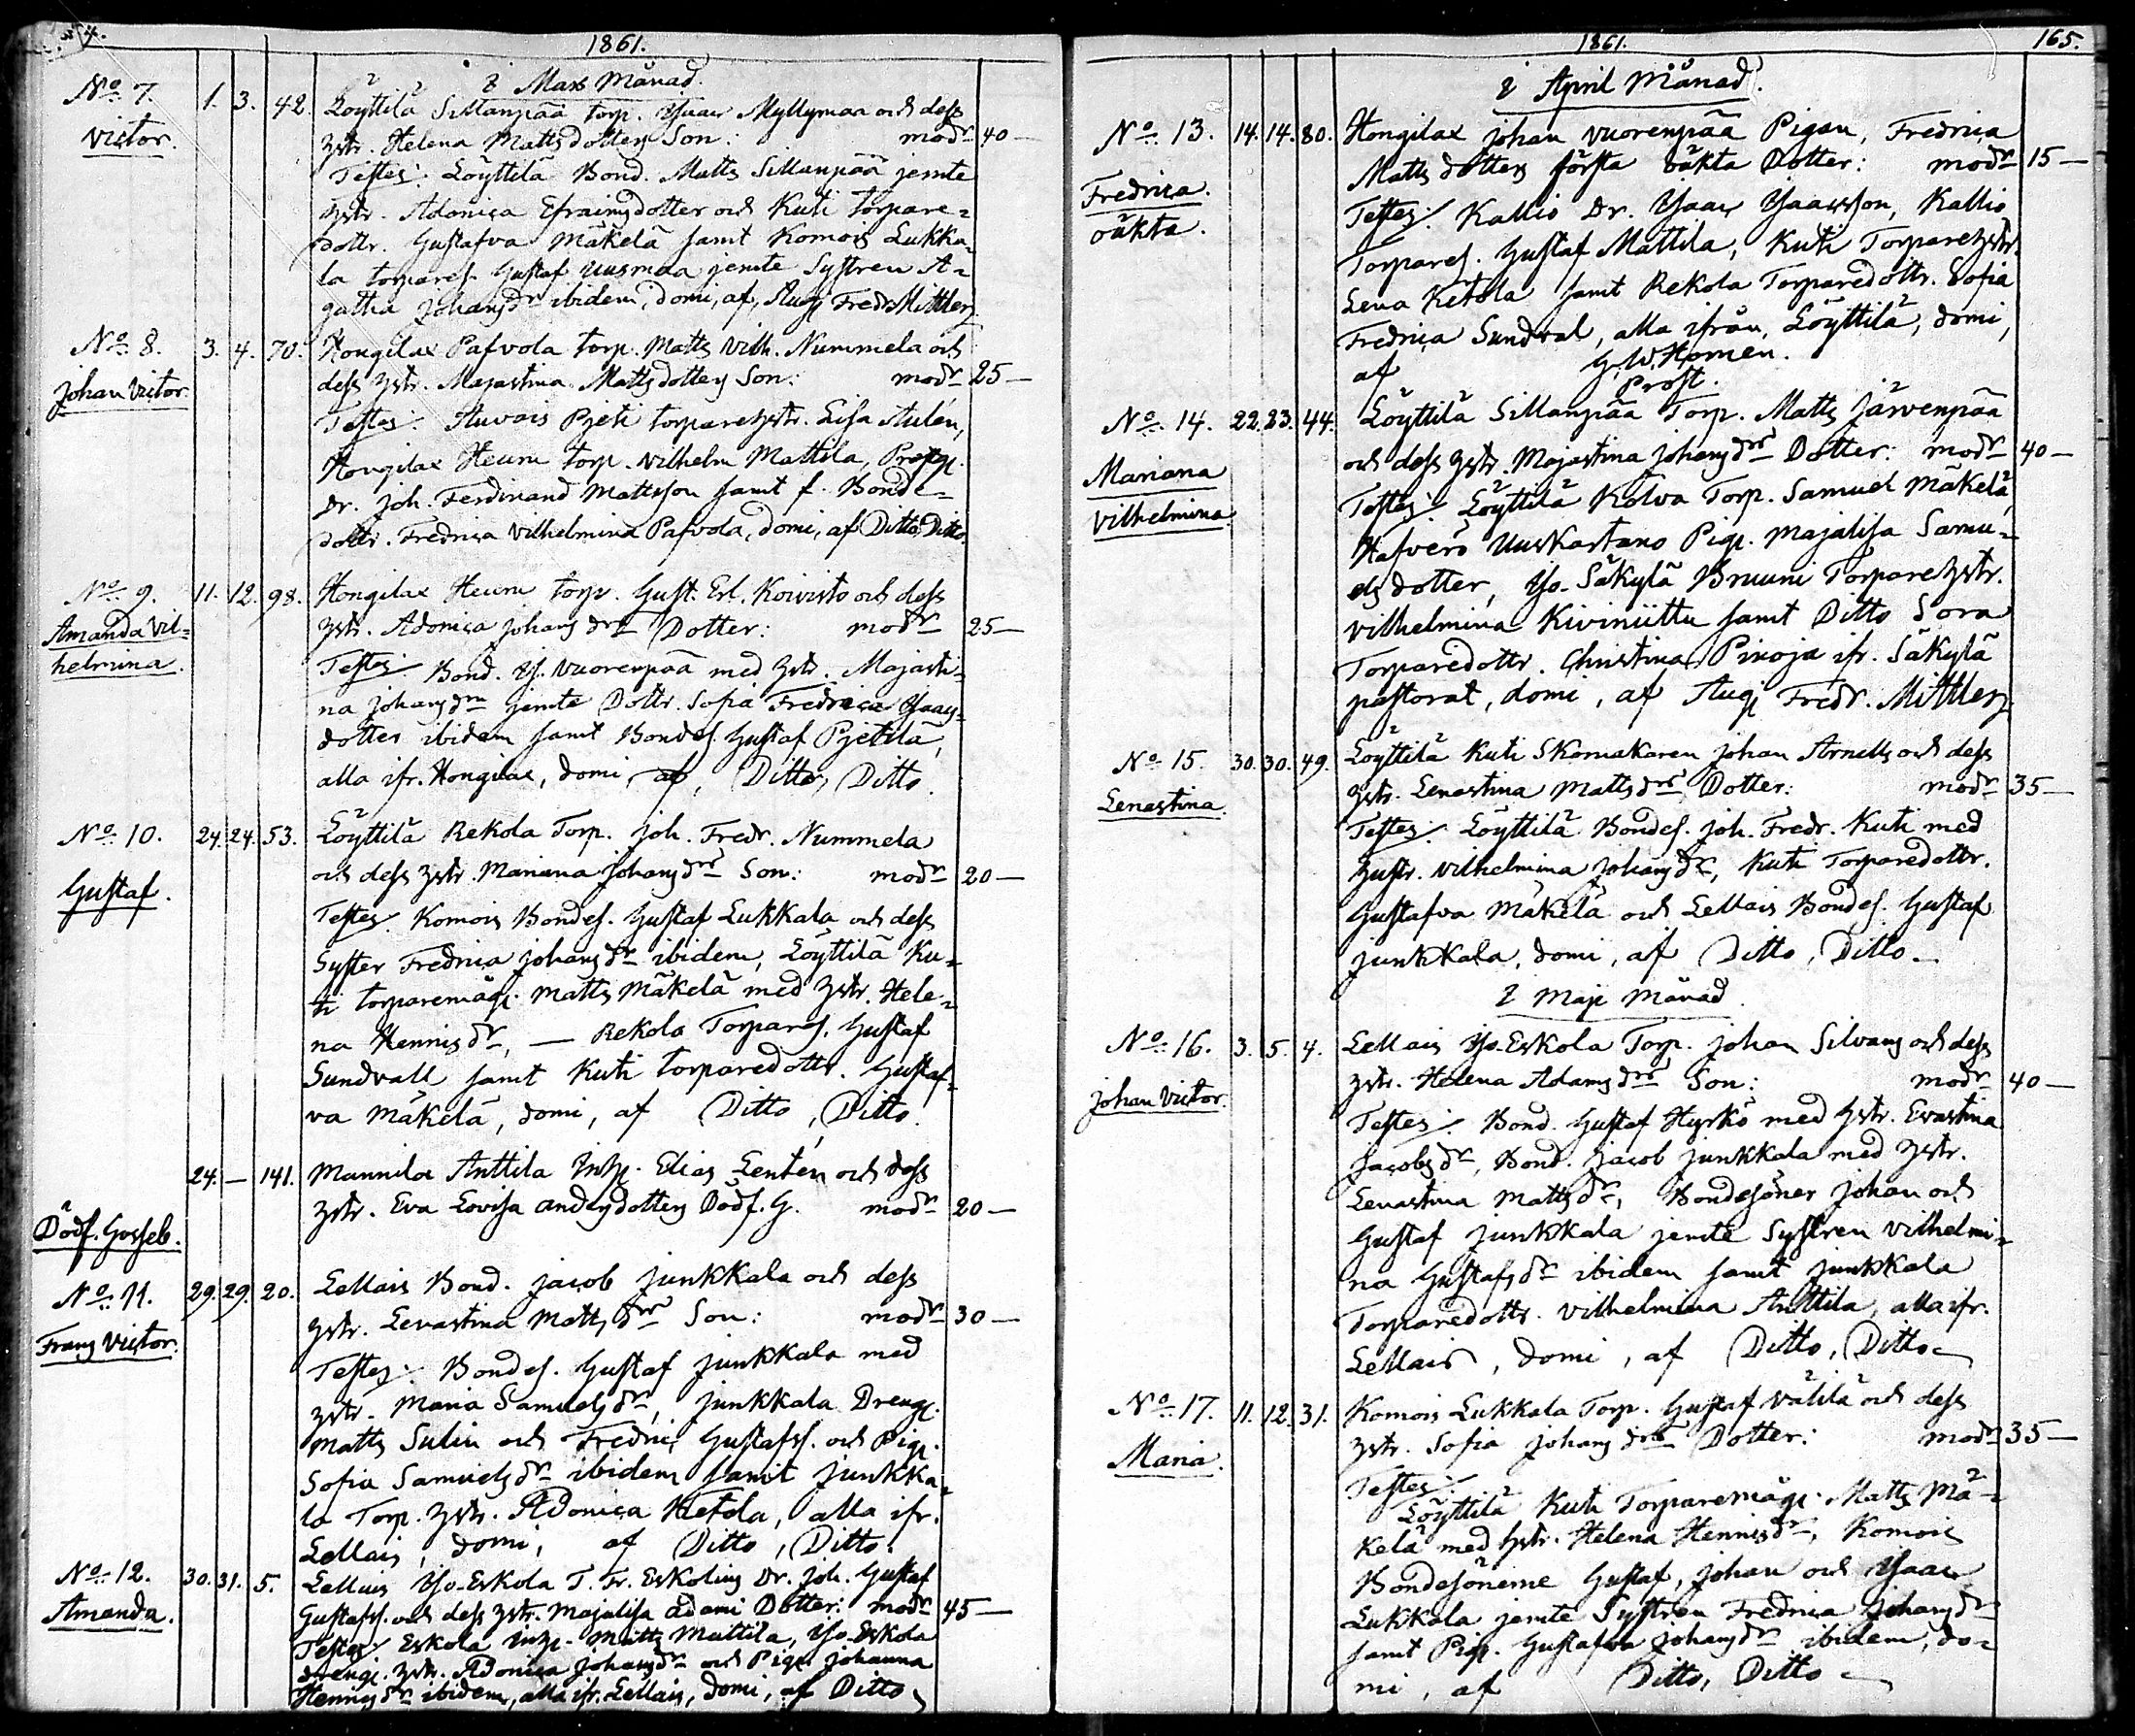 1861.
i Mars Månad.
No. 7. 1. 3. 42. Löyttilä Sillanpää torp. Isaac Myllymaa och dess
Victor. hstr. Helena Mattsdotters Son: modr 40 —
Testes: Löyttilä Bond. Matts Sillanpää jemte
hstr. Adonica Efraimsdotter och Kuti torpare=
dottr. Gustafva Mäkelä samt Komois Lukka=
la torpares. Gustaf Uusmaa jemte Systren A=
gatha Johansdr ibidem, domi, af, Aug. Fredr. Mittler.
No. 8. 3. 4. 70. Hongilax Pafvola torp. Matts Vilh. Nummela och
Johan Victor. dess hstr. Majastina Mattsdotters Son: modr 25 —
Testes: Auvais Pjeti torparehstr. Lisa Aulén,
Hongilax Heuru torp. Vilhelm Mattila,
Dr. Joh. Ferdinand Mattsson samt f. Bonde=
dottr. Fredrica Vilhelmina Pafvola, domi, af Ditto, Ditto.
No. 9. 11. 12. 98. Hongilax Heuru torp. Gust. Erl. Koivisto och dess
Amanda Vil= hstr. Adonica Johans drs Dotter: modr 25 —
helmina. Testes: Bond. Is. Vuorenpää med hstr. Majasti=
na Johansdr jemte Dottr. Sofia Fredrica Isaacs=
dotter ibidem samt Bondes. Gustaf Pjetilä,
alla ifr. Hongilax, domi, af, Ditto, Ditto.
No. 10. 24. 24. 53. Löyttilä Rekola Torp. Joh. Fredr. Nummela
Gustaf. och dess hstr. Mariana Johans drs Son: modr 20 —
Testes: Komois Bondes. Gustaf Lukkala och dess
Syster Fredrica Johansdr ibidem, Löyttilä Ku=
ti torparemåg. Matts Mäkelä med hstr. Hele=
na Hennisdr, — Rekola Torpares. Gustaf
Sundvall samt Kuti torparedottr. Gustaf=
va Mäkelä, domi, af Ditto, Ditto.
24. — 141. Mannila Anttila Inhys. Elias Lentén och dess
Dödf. Gosseb. hstr. Eva Lovisa Andersdotters Dödf. G. modr 20 —
No. 11. 29. 29. 20. Lellais Bond. Jacob Junkkala och dess
Frans Victor. hstr. Lenastina Matts drs Son: modr 30 —
Testes: Bondes. Gustaf Junkkala med
hstr. Maria Samuelsdr, Junkkala Dreng.
Matts Sulin och Fredric Gustafss. och Pig.
Sofia Samuelsdr ibidem samt Junkka=
la Torp. hstr. Adonica Ketola, alla ifr.
Lellais, domi, af Ditto, Ditto.
No. 12. 30. 31. 5. Lellais Yso-Eskola T. Fr. Eskolins Dr. Joh. Gustaf
Amanda. Gustafss. och dess hstr. Majalisa Adami Dotter: modr 45 —
Testes: Eskola Inhys. Matts Mattila, Yso-Eskola
dreng. hstr. Adonica Johansdr och Pigan Johanna
Hennisdr ibidem, alla ifr. Lellais, domi, af Ditto,
1861. 165.
i April Månad.
No. 13. 14. 14. 80. Hongilax Johan Vuorenpää Pigan, Fredrica
Fredrica. Matts dotters första oäkta Dotter: modr 15 —
oäkta. Testes: Kallio Dr. Isaac Isaacsson, Kallio
Torpares. Gustaf Mattila, Kuti Torparehstr.
Lena Ketola samt Rekola Torparedottr. Sofia
Fredrica Sundval, alla ifrån Löyttilä, domi,
af G. W. Homén.
Prost.
No. 14. 22. 23. 44. Löyttilä Sillanpää Torp. Matts Järvenpää
Mariana och dess hstr. Majastina Johans drs Dotter: modr 40 —
Vilhelmina. Testes: Löyttilä Kolva Torp. Samuel Mäkelä,
Hafverö Uuskartano Pig. Majalisa Samu=
elsdotter, Iso-Säkylä Bruuni Torparehstr.
Vilhelmina Kiviniittu samt Ditto Sora
Torparedottr. Christina Pinoja ifr. Säkylä
pastorat, domi, af Aug. Fredr. Mittler.
No. 15. 30. 30. 49. Löyttilä Kuti Skomakaren Johan Arnells och dess
Lenastina. hstr. Lenastina Matts drs Dotter: modr 35 —
Testes: Löyttilä Bondes. Joh. Fredr. Kuti med
hustr. Vilhelmina Johansdr, Kuti Torparedottr.
Gustafva Mäkelä och Lellais Bondes. Gustaf
Junkkala, domi, af Ditto, Ditto —
i Maji Månad.
No. 16. 3. 5. 4. Lellais Yso-Eskola Torp. Johan Silvans och dess
Johan Victor. hstr. Helena Adams drs Son: modr 40 —
Testes: Bond. Gustaf Hyrkö med hstr. Evastina
Jacobsdr, Bond. Jacob Junkkala med hstr.
Lenastina Mattsdr, Bondesöner Johan och
Gustaf Junkkala jemte Systren Vilhelmi=
na Gustafsdr ibidem samt Junkkala
Torparedottr. Vilhelmina Anttila, alla ifr.
Lellais, domi, af Ditto, Ditto —
No. 17. 11. 12. 31. Komois Lukkala Torp. Gustaf Välilä och dess
Maria. hstr. Sofia Johans drs Dotter: modr 35 —
Testes:
Löyttilä Kuti Torparemåg. Matts Mä=
kelä med hstr. Helena Hennisdr, Komois
Bondesönerne Gustaf, Johan och Isaac
Lukkala jemte Systren Fredrica Johansdr
samt Pig. Gustafva Johansdr ibidem, do=
mi, af Ditto, Ditto —